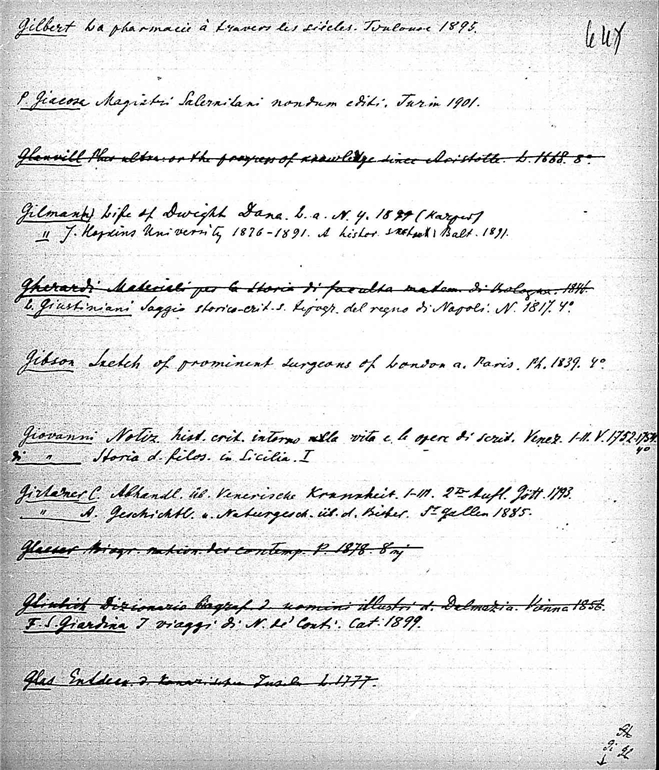 Gilbert La pharmacie à travers les siècles. Toulouse 1895.
P. Giacosa Magistri Salernitani nondum editi. Turin 1901.
Glanvill Plus ultra: or the progress of knowledge since Aristotle. L. 1668. 8°
Gilman Life of Dwight Dana. L. a. N. Y. 1899 (Harper)
" J. Hopkins University 1876-1891. A histor. sketch Balt. 1891.
Gherardi Materiali per la storia di faculta matem. di Bologna. 1846.
L. Giustiniani Saggio storico-crit. s. tipogr. del regno di Napoli. N. 1817. 4°
Gibson Sketch of prominent surgeons of London a. Paris. Ph. 1839. 4°
Giovanni Notiz. hist. crit. intorno alla vita e le opere di scrit. Venez. I-II. V. 1752-1754. 4°
di " Storia d. filos. in Sicilia. I
Girtaner C. Abhandl. üb. Venerische Krankheit. I-III. 2te Aufl. Gött. 1793.
" A. Geschichtl. u. Naturgesch. üb. d. Biber. St gallen 1885.
Glaeser Biogr. nation. des contemp. P. 1878. 8
Gliubich Dizionario biograf. d. uomini illustri d. Dalmazia. Vienna 1856.
F. S. Giardina I viaggi di N. de' Conti. Cat. 1899.
Glas Entdeck. d. Kanarischen Inseln L. 1777.
Gi Gl